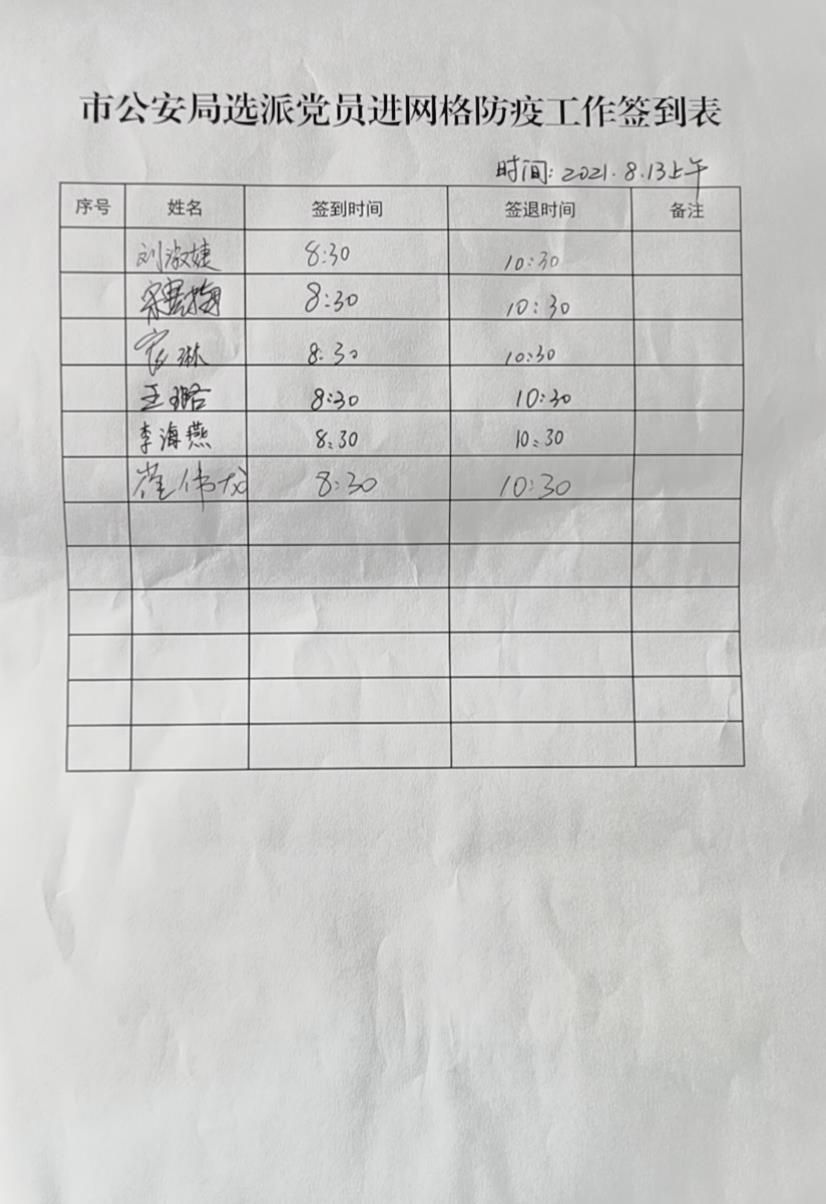 市公安局选派党员进网格防疫工作签到表
时间: 2021.8.13上午
序号 姓名 签到时间 签退时间 备注
刘淑婕 8:30 10:30
8:30 10:30
琳 8:30 10:30
王璐 8:30 10:30
李海燕 8:30 10:30
崔伟龙 8:30 10:30